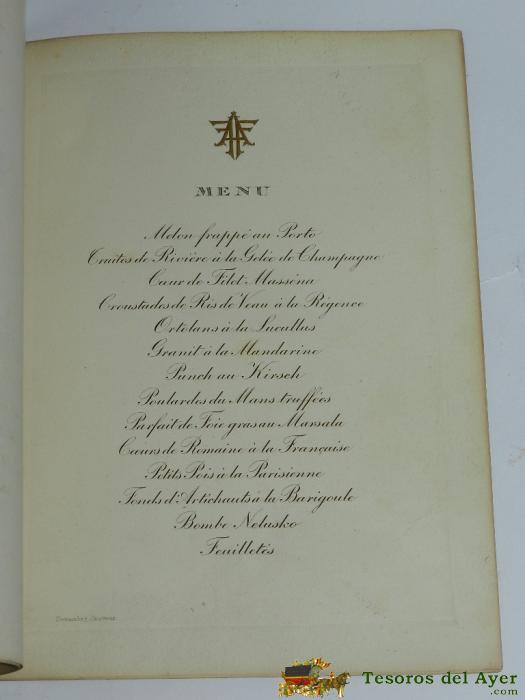 MENU
Melon frappé au Porto
Truites de Rivière à la Gelée de Champagne
Cœur de Filet Masséna
Croustades de Ris de Veau à la Régence
Ortolans à la Lucullus
Granit à la Mandarine
Punch au Kirsch
Poulardes du Mans truffées
Parfait de Foie gras au Marsala
Cœurs de Romaine à la Française
Petits Pois à la Parisienne
Fonds d'Artichauts à la Barigoule
Bombe Nelusko
Feuilletés
Tesoros del Ayer
.com